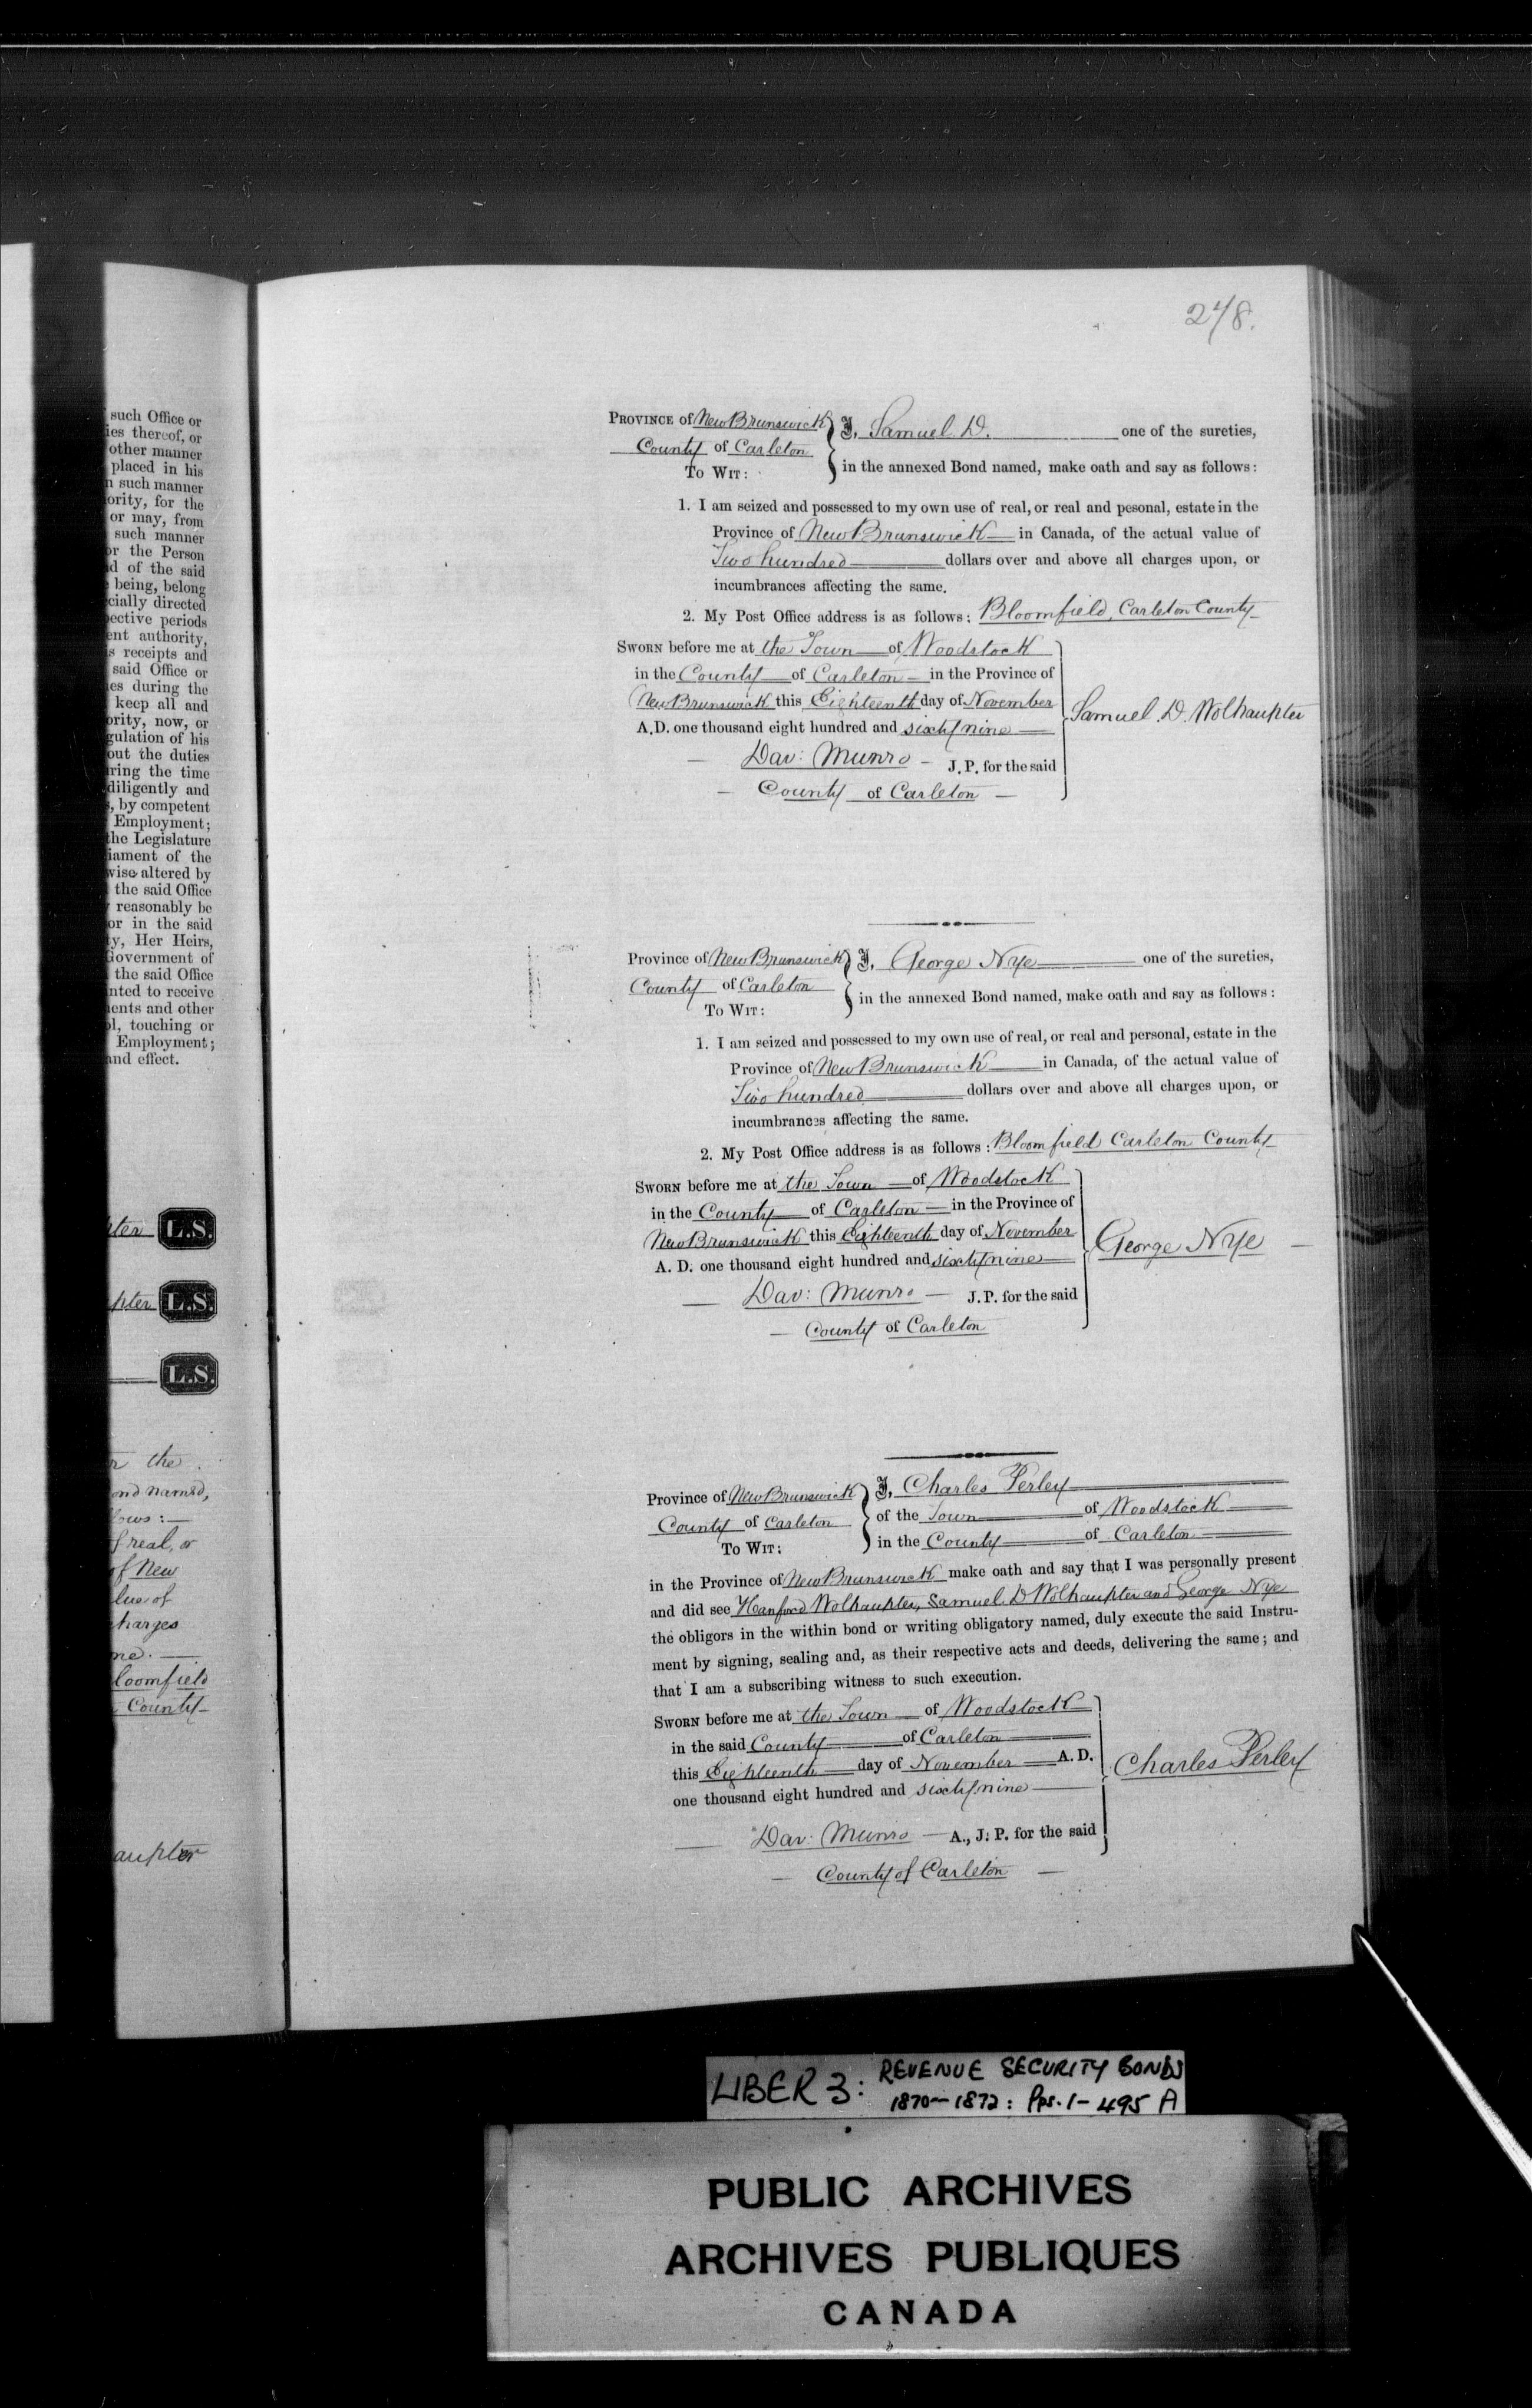 such Office or
ies thereof, or
other manner
placed in his
n such manner
ority, for the
or may, from
such manner
or the Person
d of the said
being, belong
cially directed
pective periods
ent authority,
s receipts and
said Office or
es during the
keep all and
ority, now, or
gulation of his
out the duties
ring the time
diligently and
, by competent
Employment;
the Legislature
iament of the
wise altered by
the said Office
reasonably be
or in the said
ty, Her Heirs,
Government of
the said Office
nted to receive
ents and other
l, touching or
Employment;
and effect.
pter L.S.
pter L.S.
L.S.
r the
ond named,
lows :—
f real, or
of New
lue of
charges
me. —
loomfield
County
aupter
248.
PROVINCE of New Brunswick } I, Samuel D. one of the sureties,
County of Carleton
TO WIT: } in the annexed Bond named, make oath and say as follows:
1. I am seized and possessed to my own use of real, or real and pesonal, estate in the
Province of New Brunswick in Canada, of the actual value of
Two hundred dollars over and above all charges upon, or
incumbrances affecting the same.
2. My Post Office address is as follows: Bloomfield, Carleton County
SWORN before me at the Town of Woodstock
in the County of Carleton in the Province of
New Brunswick this Eighteenth day of November
Samuel. D. Wolhaupter
A.D. one thousand eight hundred and sixty nine
Dav: Munro J. P. for the said
County of Carleton
Province of New Brunswick } I, George Nye one of the sureties,
County of Carleton
TO WIT: } in the annexed Bond named, make oath and say as follows:
1. I am seized and possessed to my own use of real, or real and personal, estate in the
Province of New Brunswick in Canada, of the actual value of
Two hundred dollars over and above all charges upon, or
incumbrances affecting the same.
2. My Post Office address is as follows: Bloomfield Carleton County
SWORN before me at the Town of Woodstock
in the County of Carleton in the Province of
New Brunswick this Eighteenth day of November
George Nye
A. D. one thousand eight hundred and sixty nine
Dav: Munro J. P. for the said
County of Carleton
Province of New Brunswick } I, Charles Perley
County of Carleton } of the Town of Woodstock
TO WIT: } in the County of Carleton
in the Province of New Brunswick make oath and say that I was personally present
and did see Hanford Wolhaupter, Samuel D Wolhaupter and George Nye
the obligors in the within bond or writing obligatory named, duly execute the said Instru-
ment by signing, sealing and, as their respective acts and deeds, delivering the same; and
that I am a subscribing witness to such execution.
SWORN before me at the Town of Woodstock
in the said County of Carleton
this Eighteenth day of November A. D.
Charles Perley
one thousand eight hundred and sixty nine
Dav: Munro A., J. P. for the said
County of Carleton
LIBER 3: REVENUE SECURITY BONDS
1870-1872: Pps. 1-495 A
PUBLIC ARCHIVES
ARCHIVES PUBLIQUES
CANADA